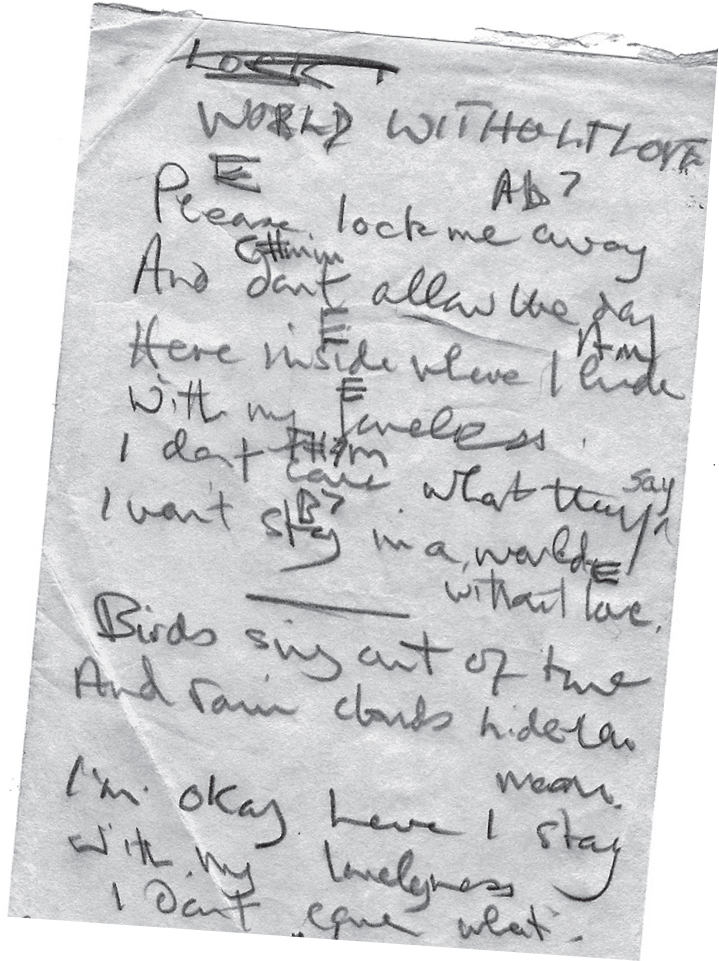 LOCK
WORLD WITHOUT LOVE
E Ab7
Please lock me away
G#min
And don't allow the day
E Am
Here inside where I hide
E
With my loneless.
F#m
I don't care what they say
B7
I won't stay in a world
E
without love.
Birds sing out of tune
And rain clouds hide the
moon.
I'm okay here I stay
With my lonelyness
I Don't care what.